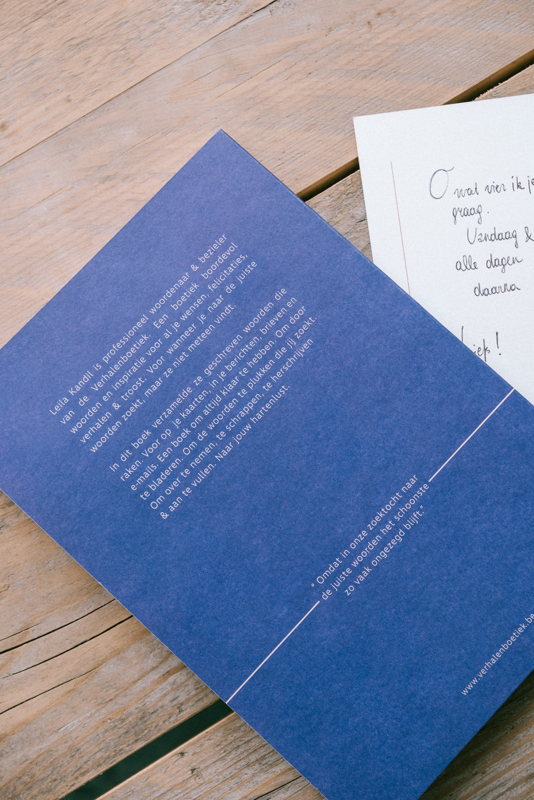 Leila Kandil is professioneel woordenaar & bezieler
van de Verhalenboetiek. Een boetiek boordevol
woorden en inspiratie voor al je wensen, felicitaties,
verhalen & troost. Voor wanneer je naar de juiste
woorden zoekt, maar ze niet meteen vindt.
In dit boek verzamelde ze geschreven woorden die
raken. Voor op je kaarten, in je berichten, brieven en
e-mails. Een boek om altijd klaar te hebben. Om door
te bladeren. Om de woorden te plukken die jij zoekt.
Om over te nemen, te schrappen, te herschrijven
& aan te vullen. Naar jouw hartenlust.
" Omdat in onze zoektocht naar
de juiste woorden het schoonste
zo vaak ongezegd blijft."
www.verhalenboetiek.be
O wat vier ik je
graag.
Vandaag &
alle dagen
daarna